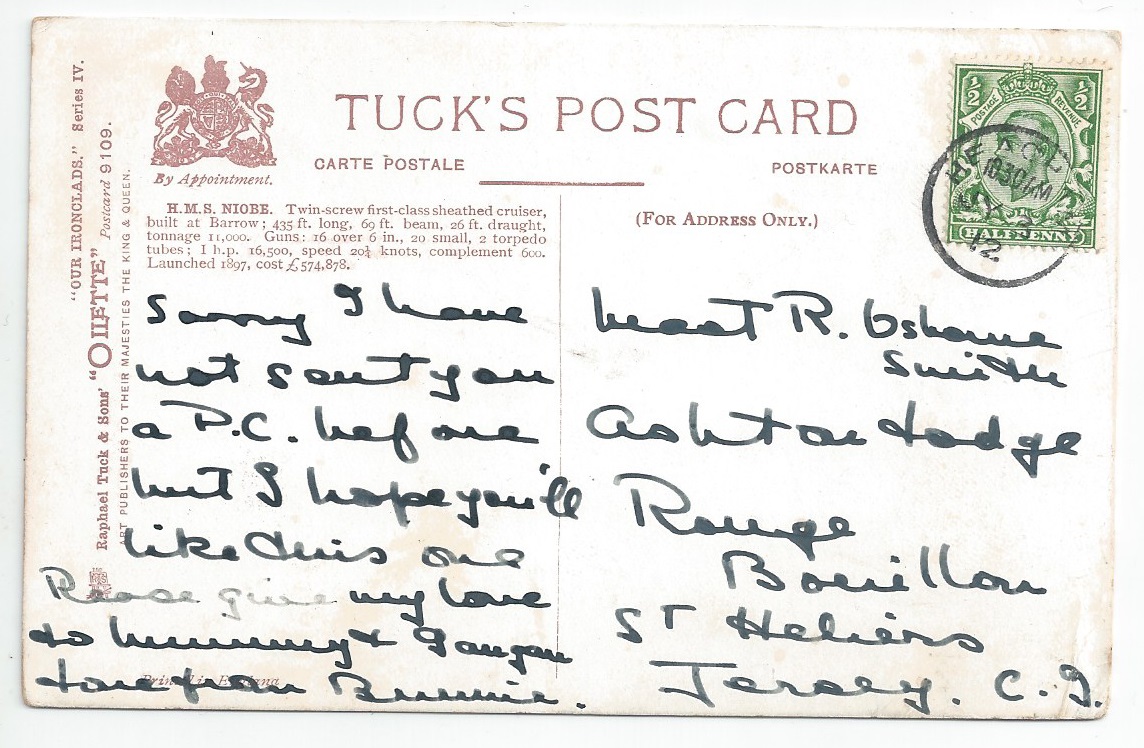 "OUR IRONCLADS." Series IV.
Raphael Tuck & Sons' "OILETTE" Postcard 9109.
ART PUBLISHERS TO THEIR MAJESTIES THE KING & QUEEN.
By Appointment.
TUCK'S POST CARD
CARTE POSTALE
POSTKARTE
H.M.S. NIOBE. Twin-screw first-class sheathed cruiser,
built at Barrow; 435 ft. long, 69 ft. beam, 26 ft. draught,
tonnage 11,000. Guns: 16 over 6 in., 20 small, 2 torpedo
tubes; I h.p. 16,500, speed 20¼ knots, complement 600.
Launched 1897, cost £574,878.
(FOR ADDRESS ONLY.)
½ ½
POSTAGE REVENUE
HALFPENNY
10.30 AM
MY 3
12
Sorry I have
not sent you
a P.C. before
but I hope you'll
like this one
Please give my love
to mummy &
love from Bunnie.
Printed in England
R. Osborne
Smith
Ashton Lodge
Rouge
Bouillon
St Heliers
Jersey. C.I.